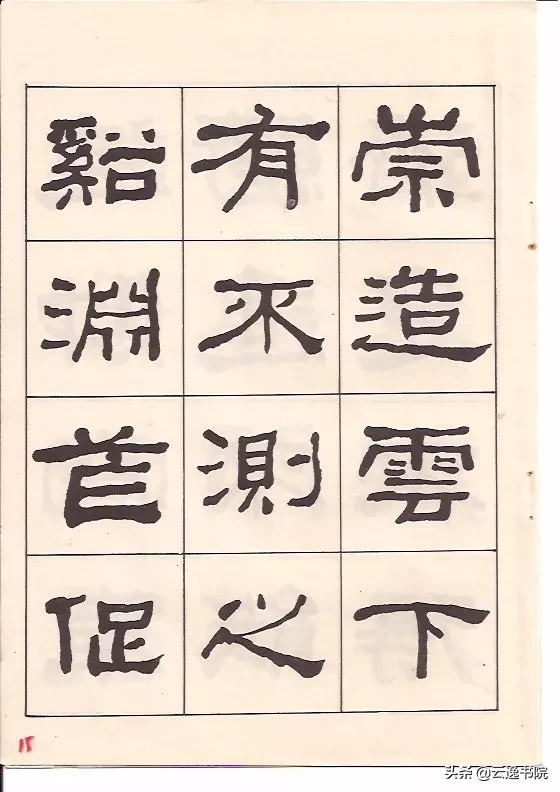 崇造雲下
有不測之
谿淵促
15
头条 @云逸书院